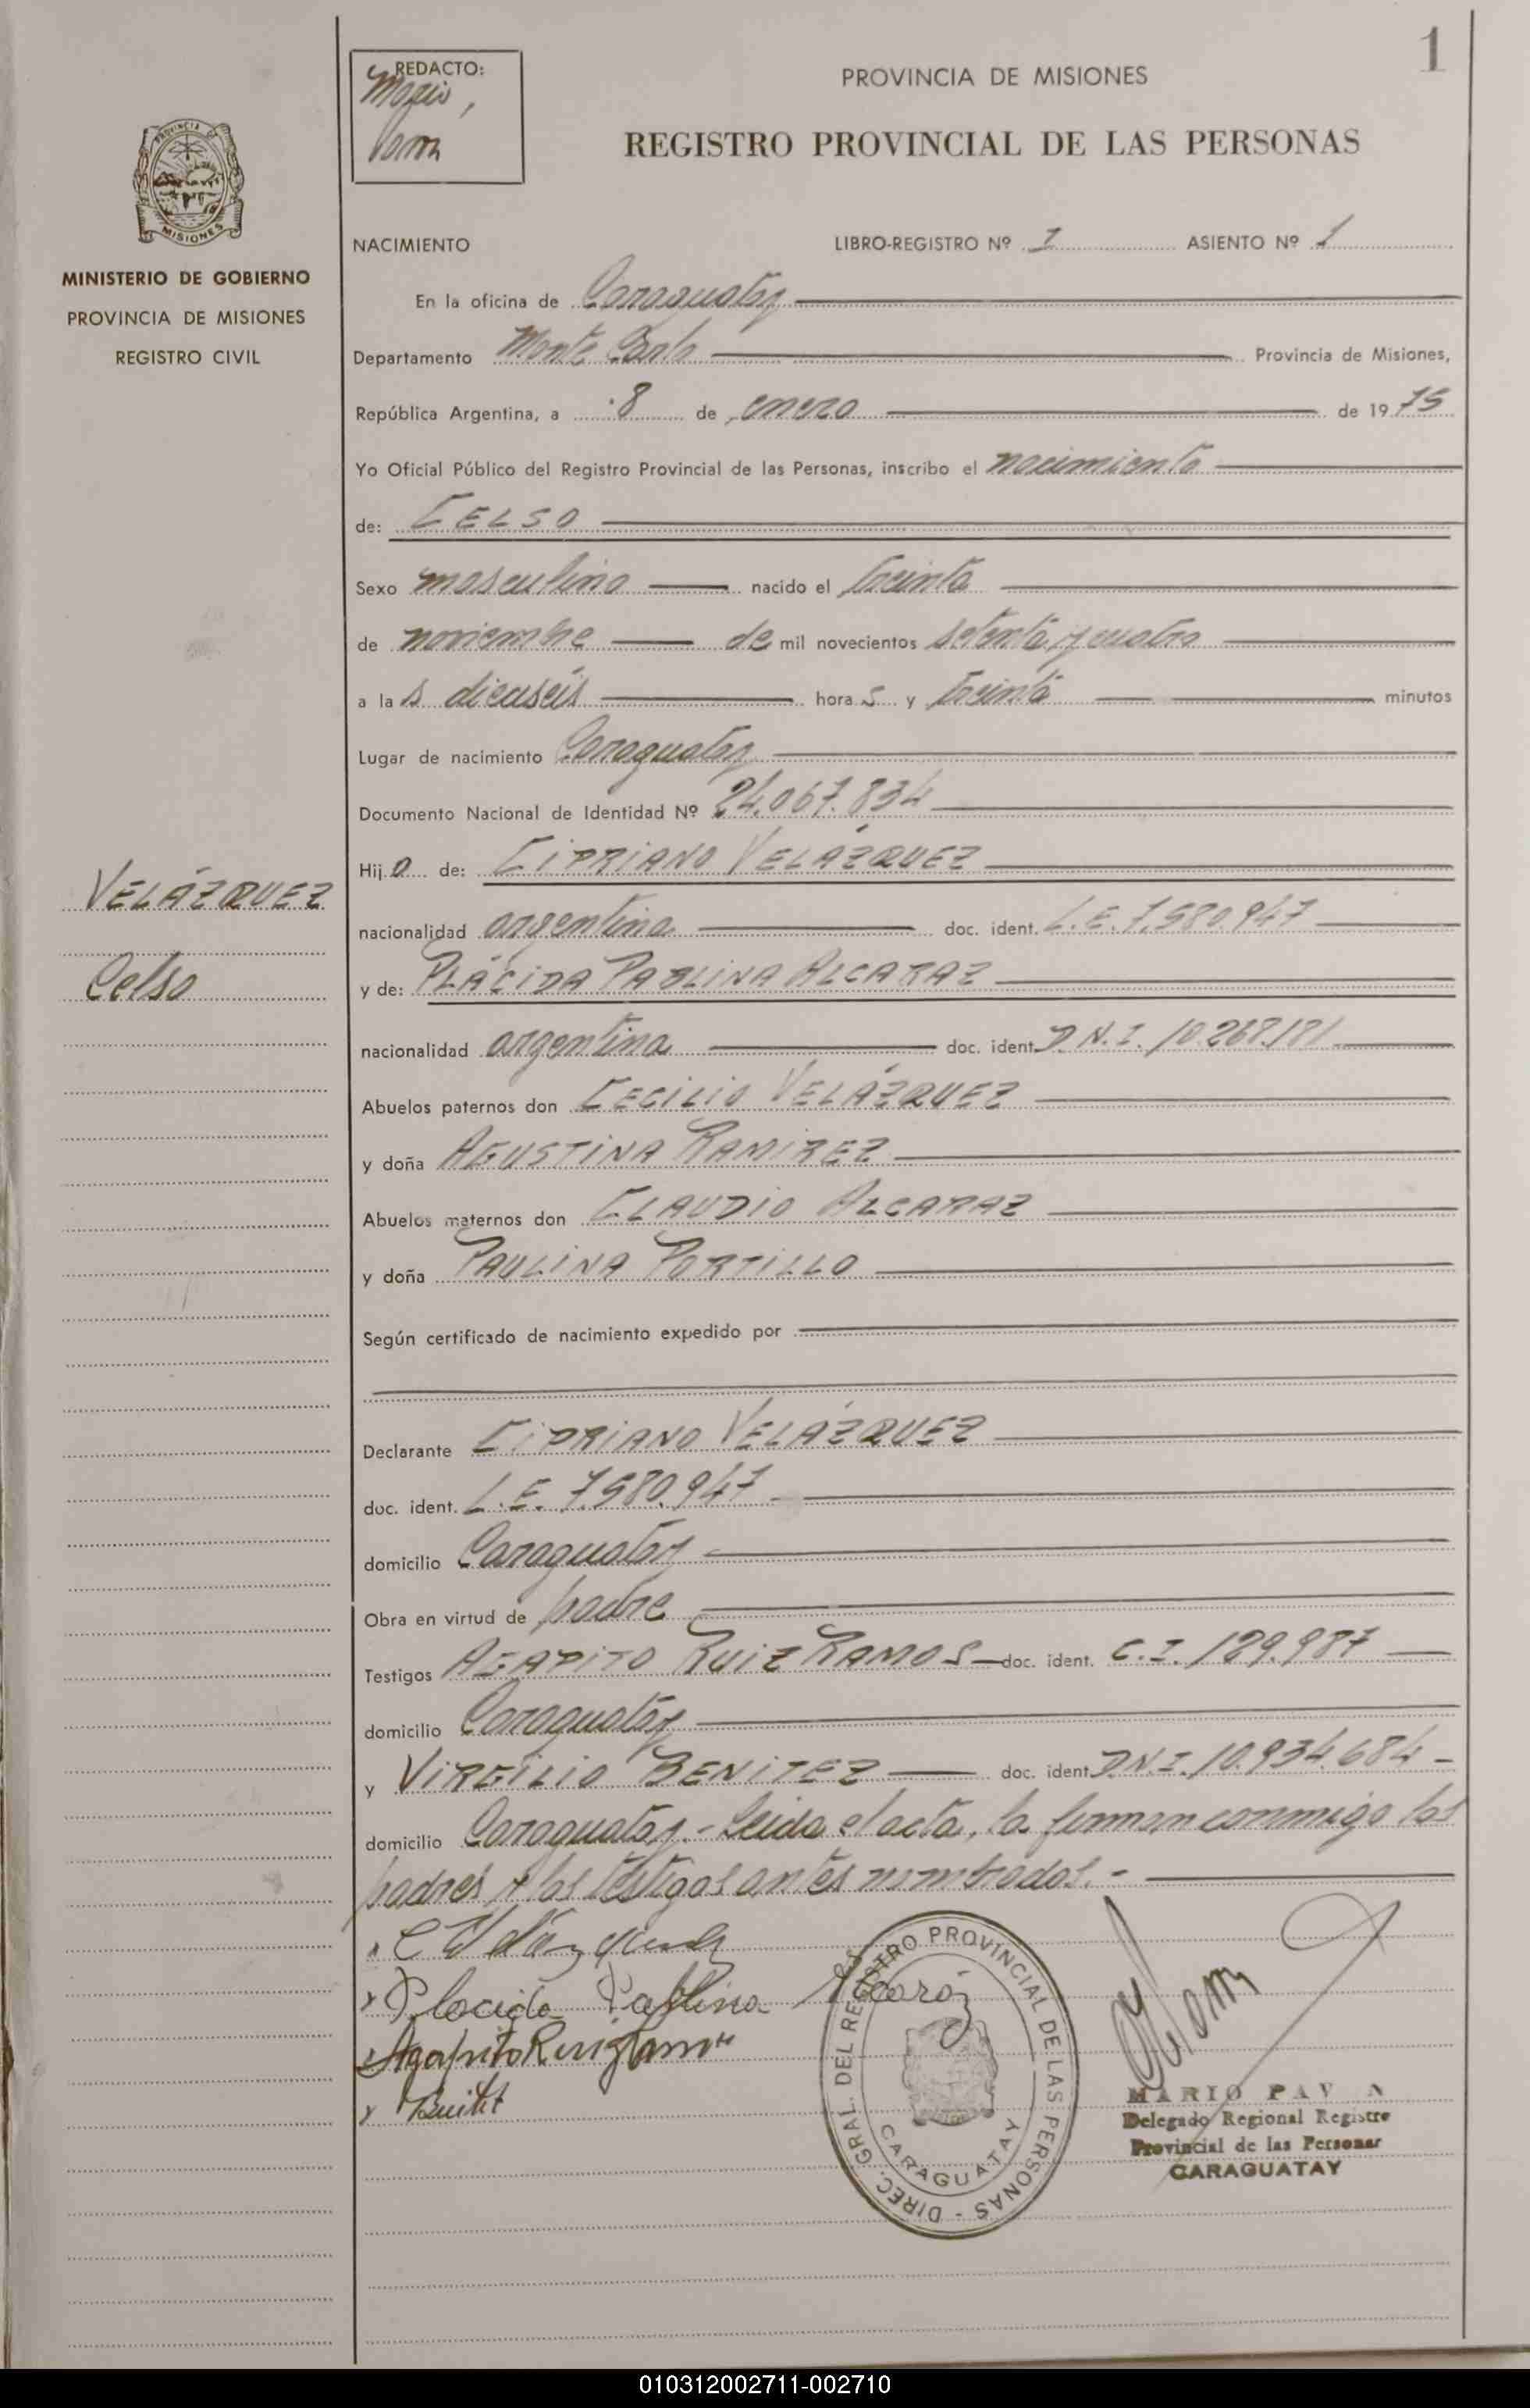 1
REDACTO:
PROVINCIA DE MISIONES
REGISTRO PROVINCIAL DE LAS PERSONAS
PROVINCIA DE
MISIONES
MINISTERIO DE GOBIERNO
PROVINCIA DE MISIONES
REGISTRO CIVIL
NACIMIENTO LIBRO-REGISTRO Nº I ASIENTO Nº 1
En la oficina de Caraguatay
Departamento Monte Carlo Provincia de Misiones,
República Argentina, a 8 de enero de 1975
Yo Oficial Público del Registro Provincial de las Personas, inscribo el nacimiento
de: CELSO
Sexo masculino nacido el treinta
de noviembre de mil novecientos setenta y cuatro
a las dieciseis horas y treinta minutos
Lugar de nacimiento Caraguatay
Documento Nacional de Identidad Nº 24.067.834
Hijo de: CIPRIANO VELÁZQUEZ
VELÁZQUEZ
Celso
nacionalidad argentina doc. ident. L.E. 7.580.947
y de: PLÁCIDA PABLINA ALCARAZ
nacionalidad argentina doc. ident. D.N.I. 10.268.181
Abuelos paternos don CECILIO VELÁZQUEZ
y doña AGUSTINA RAMIREZ
Abuelos maternos don CLAUDIO ALCARAZ
y doña PAULINA PORTILLO
Según certificado de nacimiento expedido por
Declarante CIPRIANO VELÁZQUEZ
doc. ident. L.E. 7.580.947
domicilio Caraguatay
Obra en virtud de padre
Testigos AGAPITO RUIZ RAMOS doc. ident. C.I. 189.987
domicilio Caraguatay
y VIRGILIO BENITEZ doc. ident. D.N.I. 10.934.684
domicilio Caraguatay.- Leida el acta, la firman conmigo los
padres y los testigos antes nombrados.-
C Velázquez
Placida Pablina Alcaráz
Agapito Ruiz Ramos
DIREC. GRAL. DEL REGISTRO PROVINCIAL DE LAS PERSONAS -
CARAGUATAY
MARIO PAV N
Delegado Regional Registro
Provincial de las Personas
CARAGUATAY
010312002711-002710